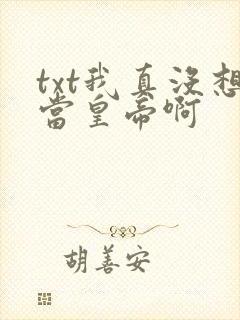 txt我真没想
当皇帝啊
胡善安